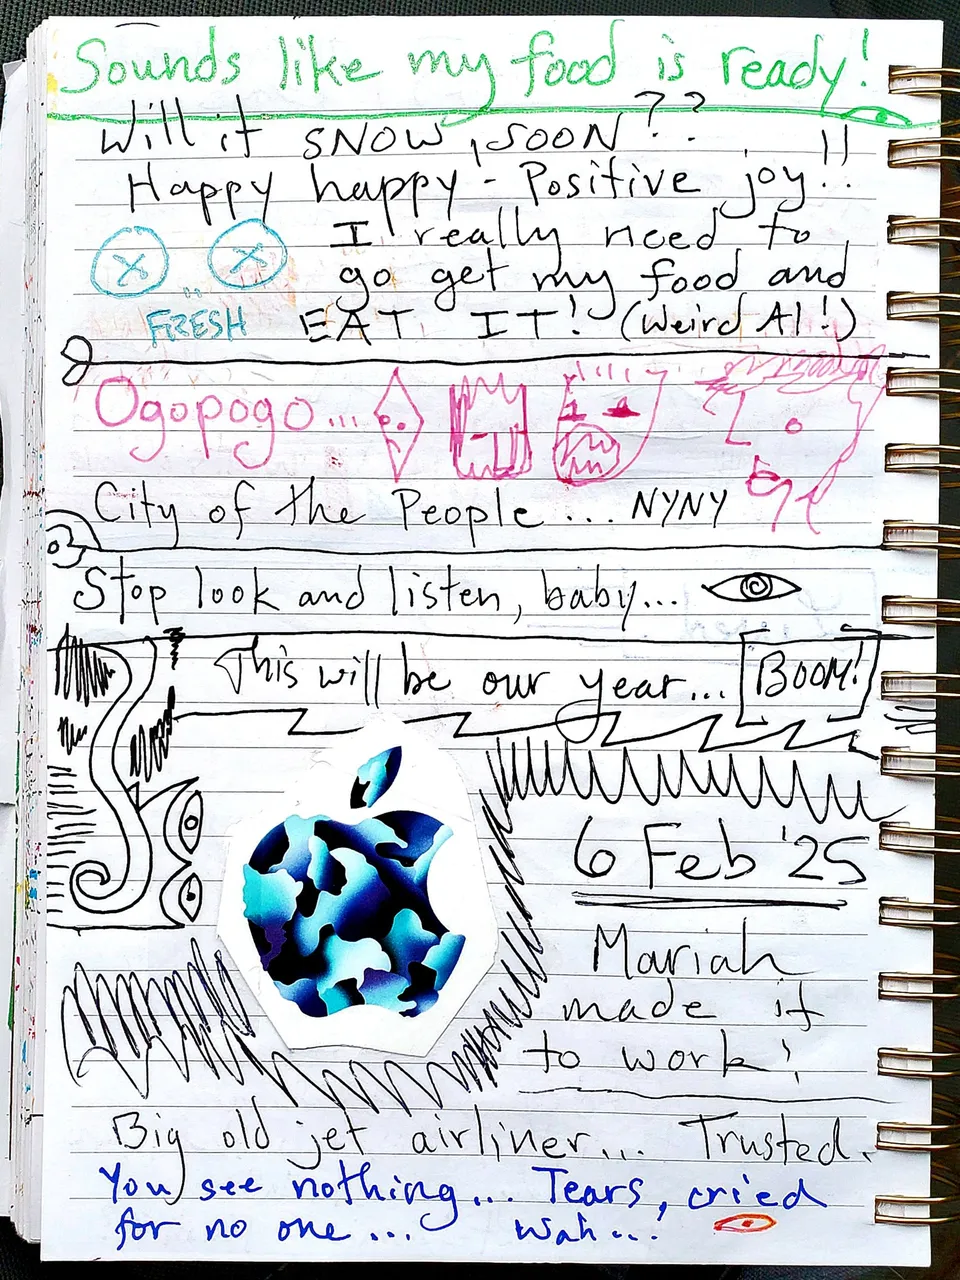 Sounds like my food is ready!
Will it SNOW, SOON??
Happy happy - Positive joy!!
I really need to
go get my food and
FRESH EAT IT! (Weird Al!)
Ogopogo...
City of the People ... NYNY
Stop look and listen, baby...
This will be our year... BOOM!
6 Feb '25
Mariah
made it
to work!
Big old jet airliner... Trusted.
You see nothing... Tears, cried
for no one... Wah...